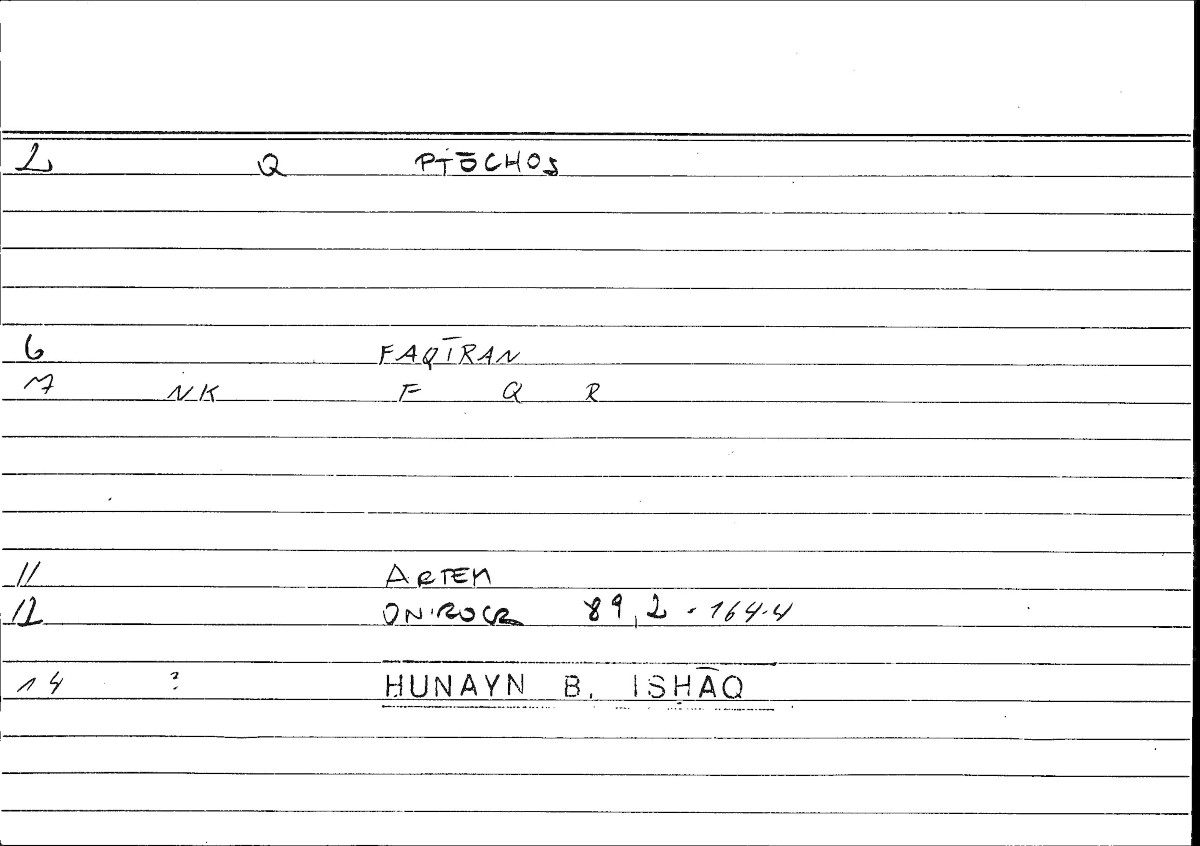 2 Q PTŌCHOS
6 FAQĪRAN
7 NK F Q R
11 ARTEM
12 ONIROCR 89,2 - 164.4
14 ? HUNAYN B. ISḤĀQ